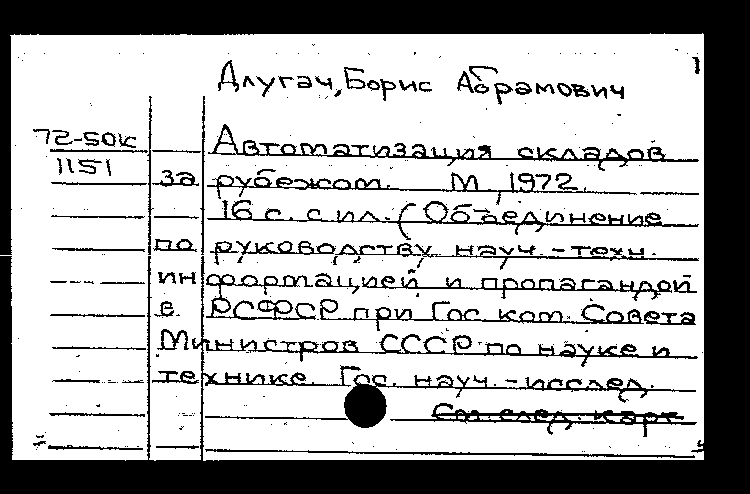 Длугач, Борис Абрамович
1
72-50к
1151
Автоматизация складов
за рубежом. М., 1972.
16 с. с ил. (Объединение
по руководству науч.-техн.
информацией и пропагандой
в РСФСР при Гос ком. Совета
Министров СССР по науке и
технике. Гос. науч.-исслед.
См. след. карт